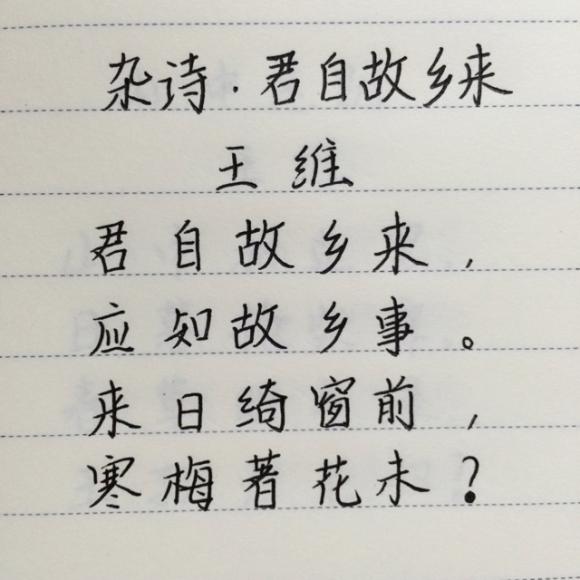 杂诗·君自故乡来
王维
君自故乡来，
应如故乡事。
来日绮窗前，
寒梅著花未？